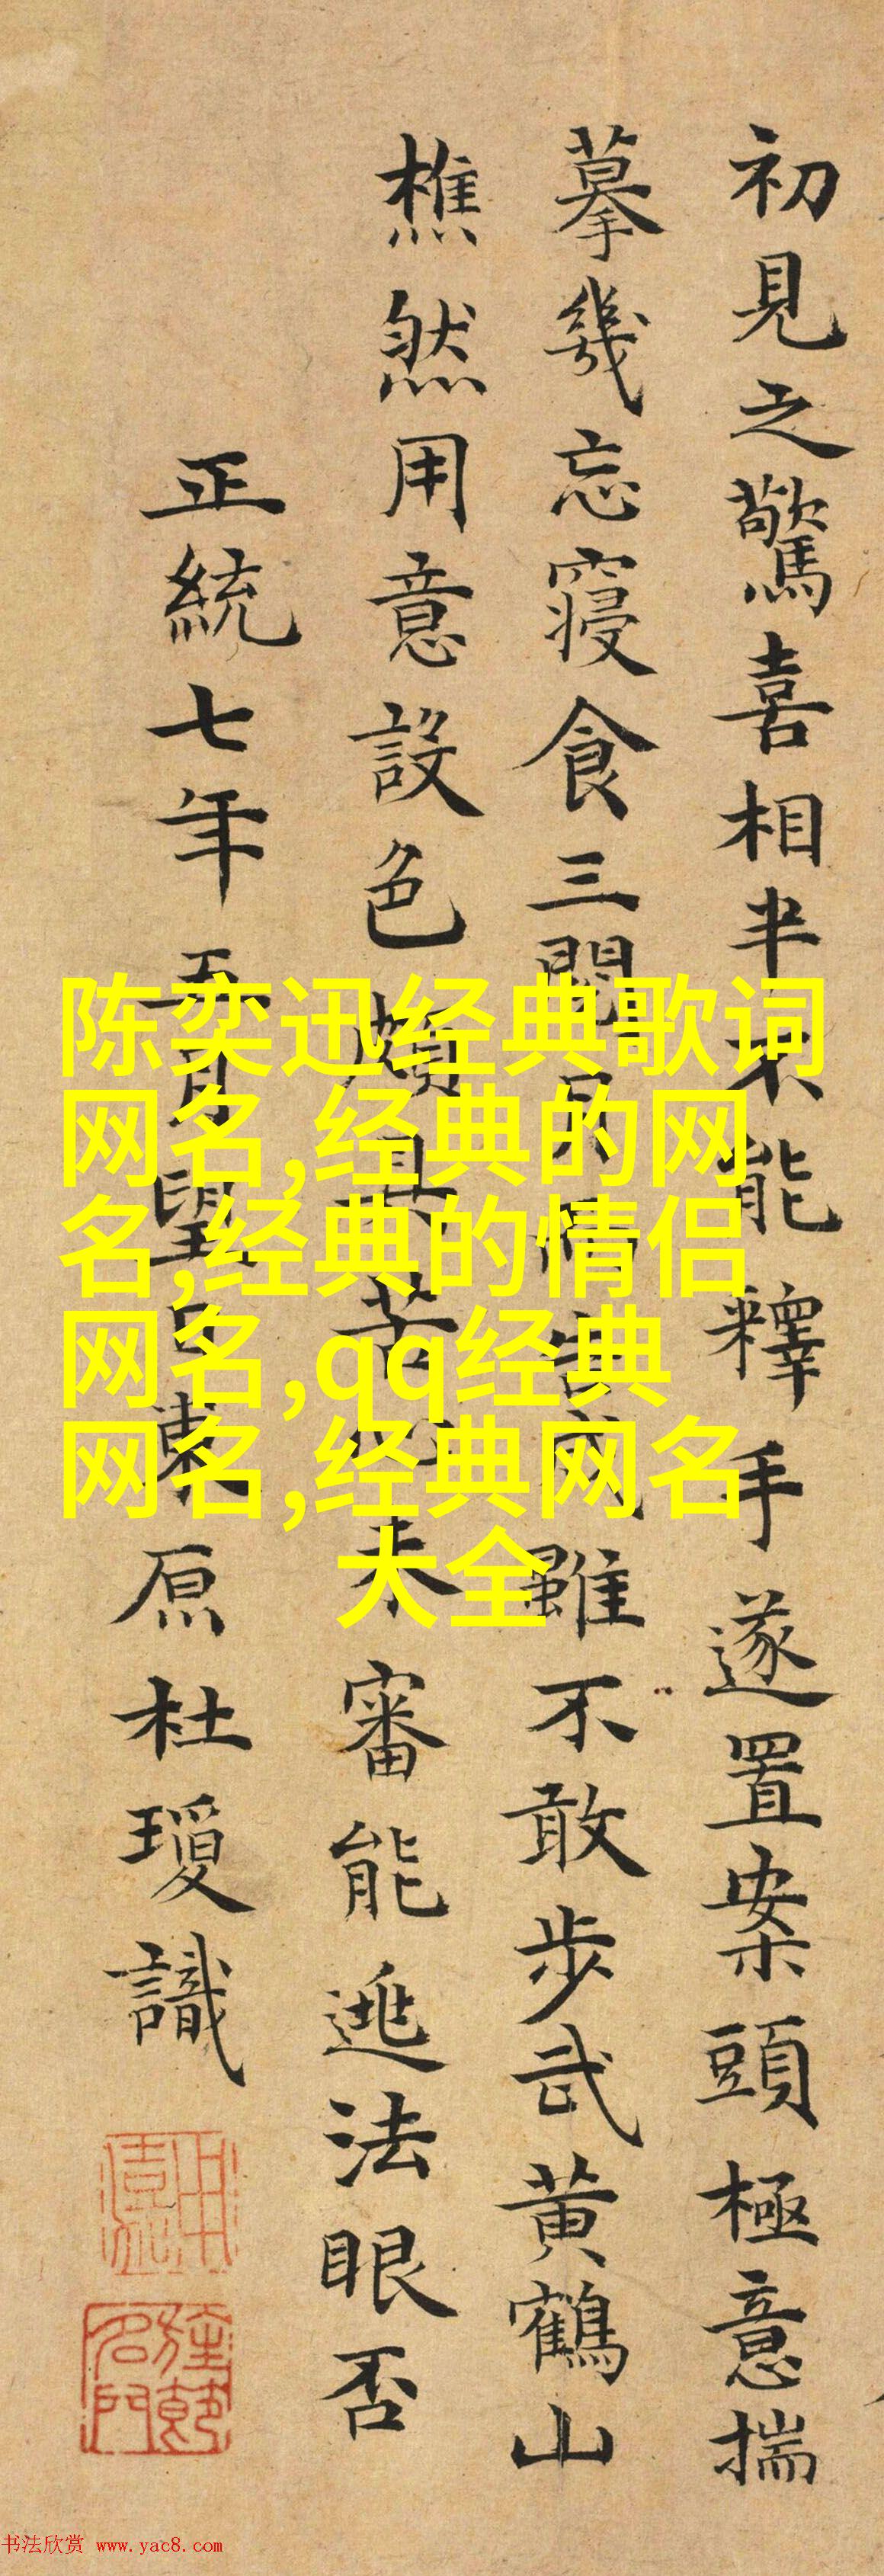 初見之驚喜相半不能釋手遂置案頭極意揣
摹幾忘寢食三閱月情告成雖不敢步武黃鶴山
樵然用意設色頗具苦心未審能逃法眼否
正統七年五月望日東原杜瓊識
陈奕迅经典歌词
网名,经典的网
名,经典的情侣
网名,qq经典
网名,经典网名
大全
书法欣赏 www.yac8.com